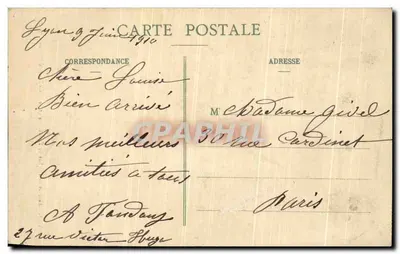 Lyon 9 Juin 1910
CARTE POSTALE
CORRESPONDANCE
ADRESSE
Chère Louise
Bien arrivé
Nos meilleurs
amitiés à tous
27 rue Victor Hugo
M Madame Givel
30 rue Cardinet
Paris
CPAPHIL